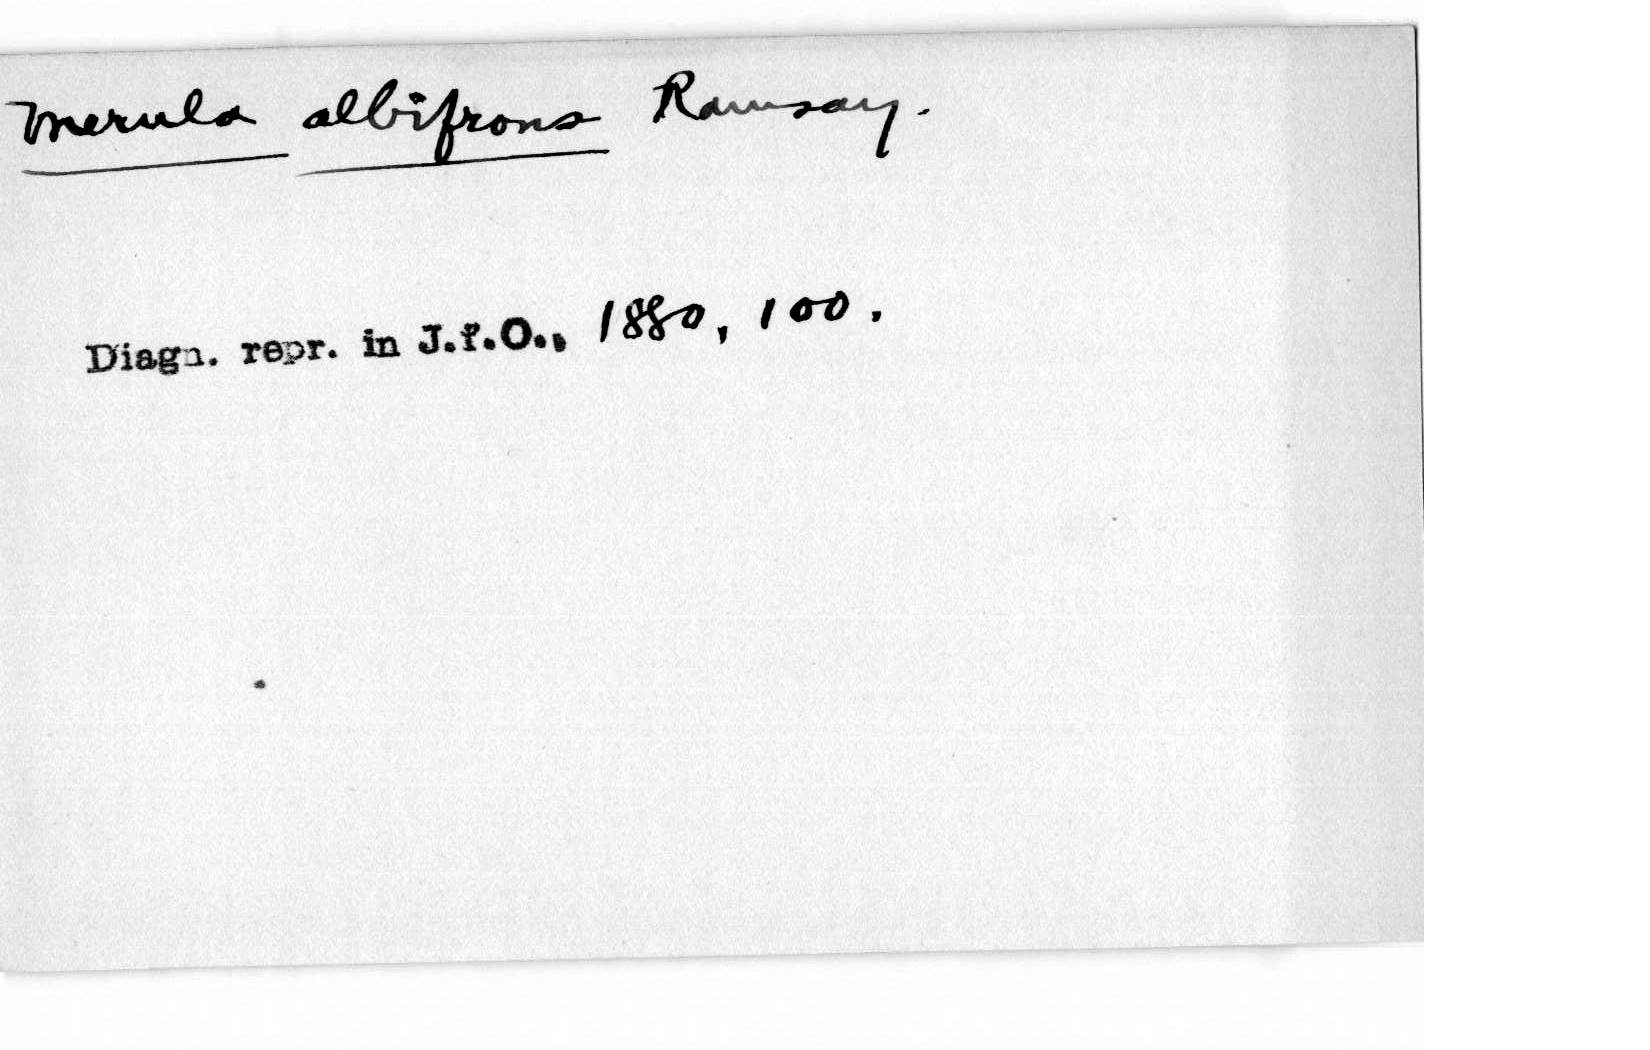 Merula albifrons Ramsay.
Diagn. repr. in J.f.O., 1880, 100.